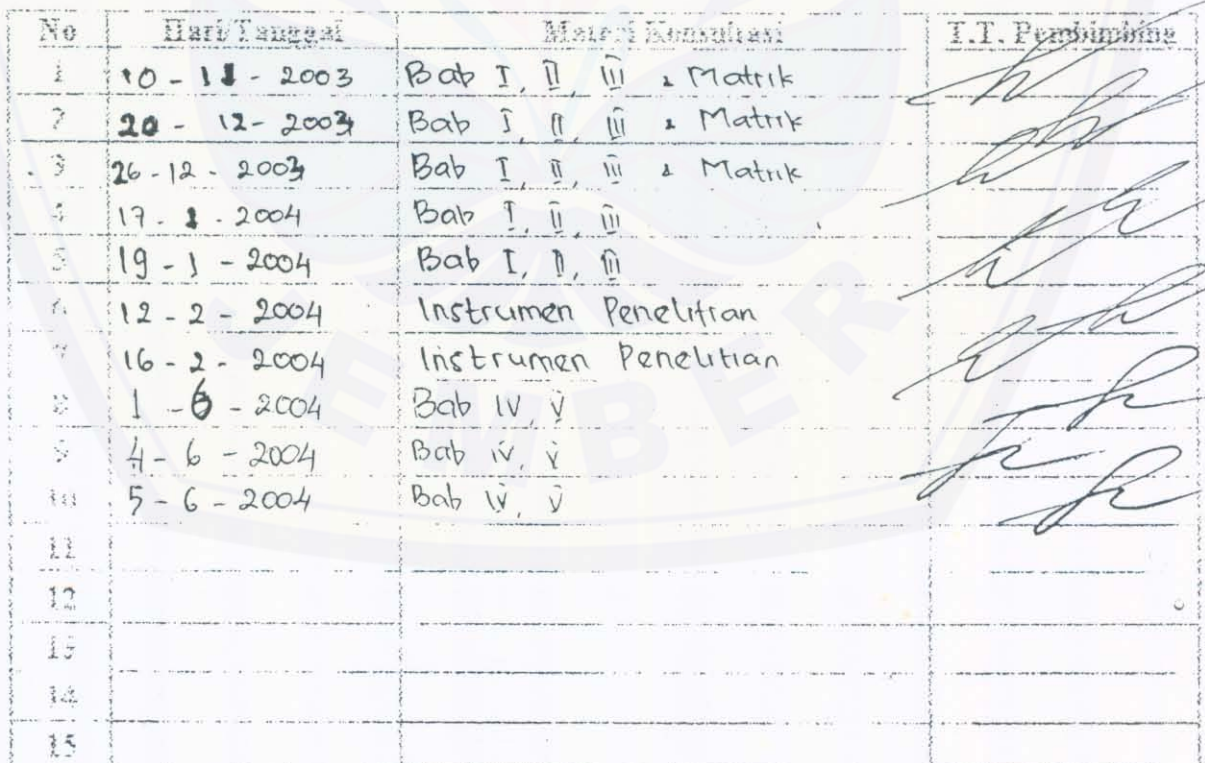 No Hari/Tanggal Materi Konsultasi T.T. Pembimbing
1 10 - 11 - 2003 Bab I, II, III & Matrik
2 20 - 12 - 2003 Bab I, II, III & Matrik
3 26 - 12 - 2003 Bab I, II, III & Matrik
4 17 - 1 - 2004 Bab I, II, III
5 19 - 1 - 2004 Bab I, II, III
6 12 - 2 - 2004 Instrumen Penelitian
7 16 - 2 - 2004 Instrumen Penelitian
8 1 - 6 - 2004 Bab IV, V
9 4 - 6 - 2004 Bab IV, V
10 5 - 6 - 2004 Bab IV, V
11
12
13
14
15
JEMBER